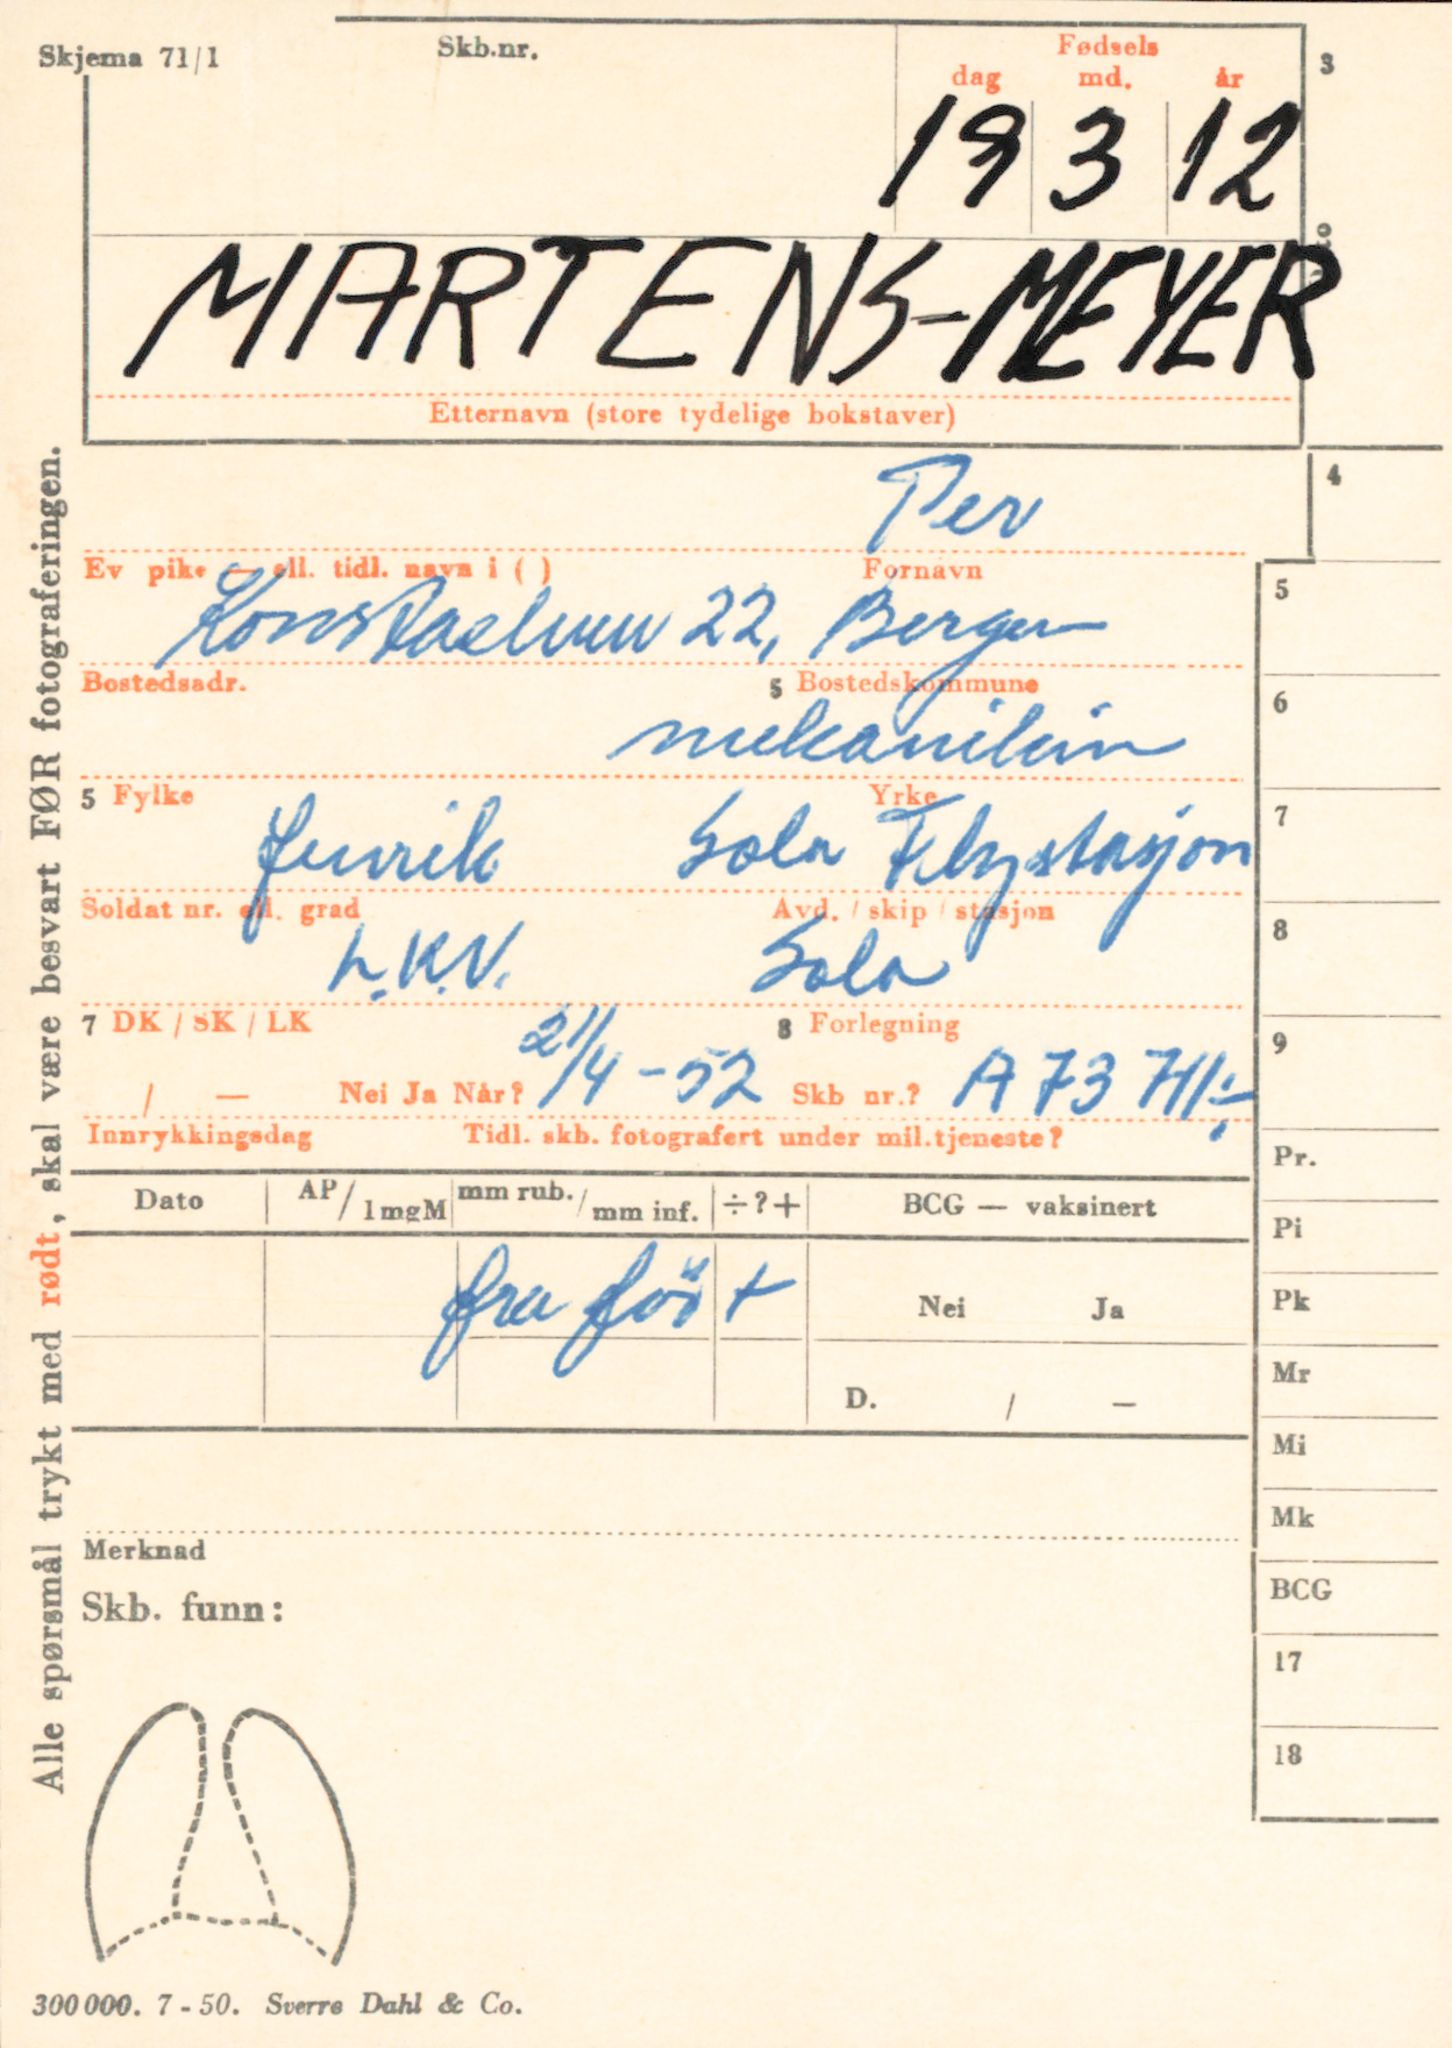 Skjema 71/1 Skb.nr. Fødsels 3
dag md. år
19 3 12
MARTENS-MEYER
Etternavn (store tydelige bokstaver)
Per 4
Ev pike — ell. tidl. navn i ( ) Fornavn 5
22, Bergen
Bostedsadr. 5 Bostedskommune 6
5 Fylke Yrke 7
fenrik Sola Flystasjon
Soldat nr. ell. grad Avd. / skip / stasjon 8
L.K.V. Sola
7 DK / SK / LK 8 Forlegning 9
/ — Nei Ja Når? 21/4-52 Skb nr.? A 73
Innrykkingsdag Tidl. skb. fotografert under mil.tjeneste? Pr.
Dato AP / 1mgM mm rub. / mm inf. ÷?+ BCG — vaksinert
Pi
fra før + Nei Ja Pk
Mr
D. / —
Mi
Mk
Merknad
BCG
Skb. funn:
17
18
300000. 7-50. Sverre Dahl & Co.
Alle spørsmål trykt med rødt, skal være besvart FØR fotograferingen.